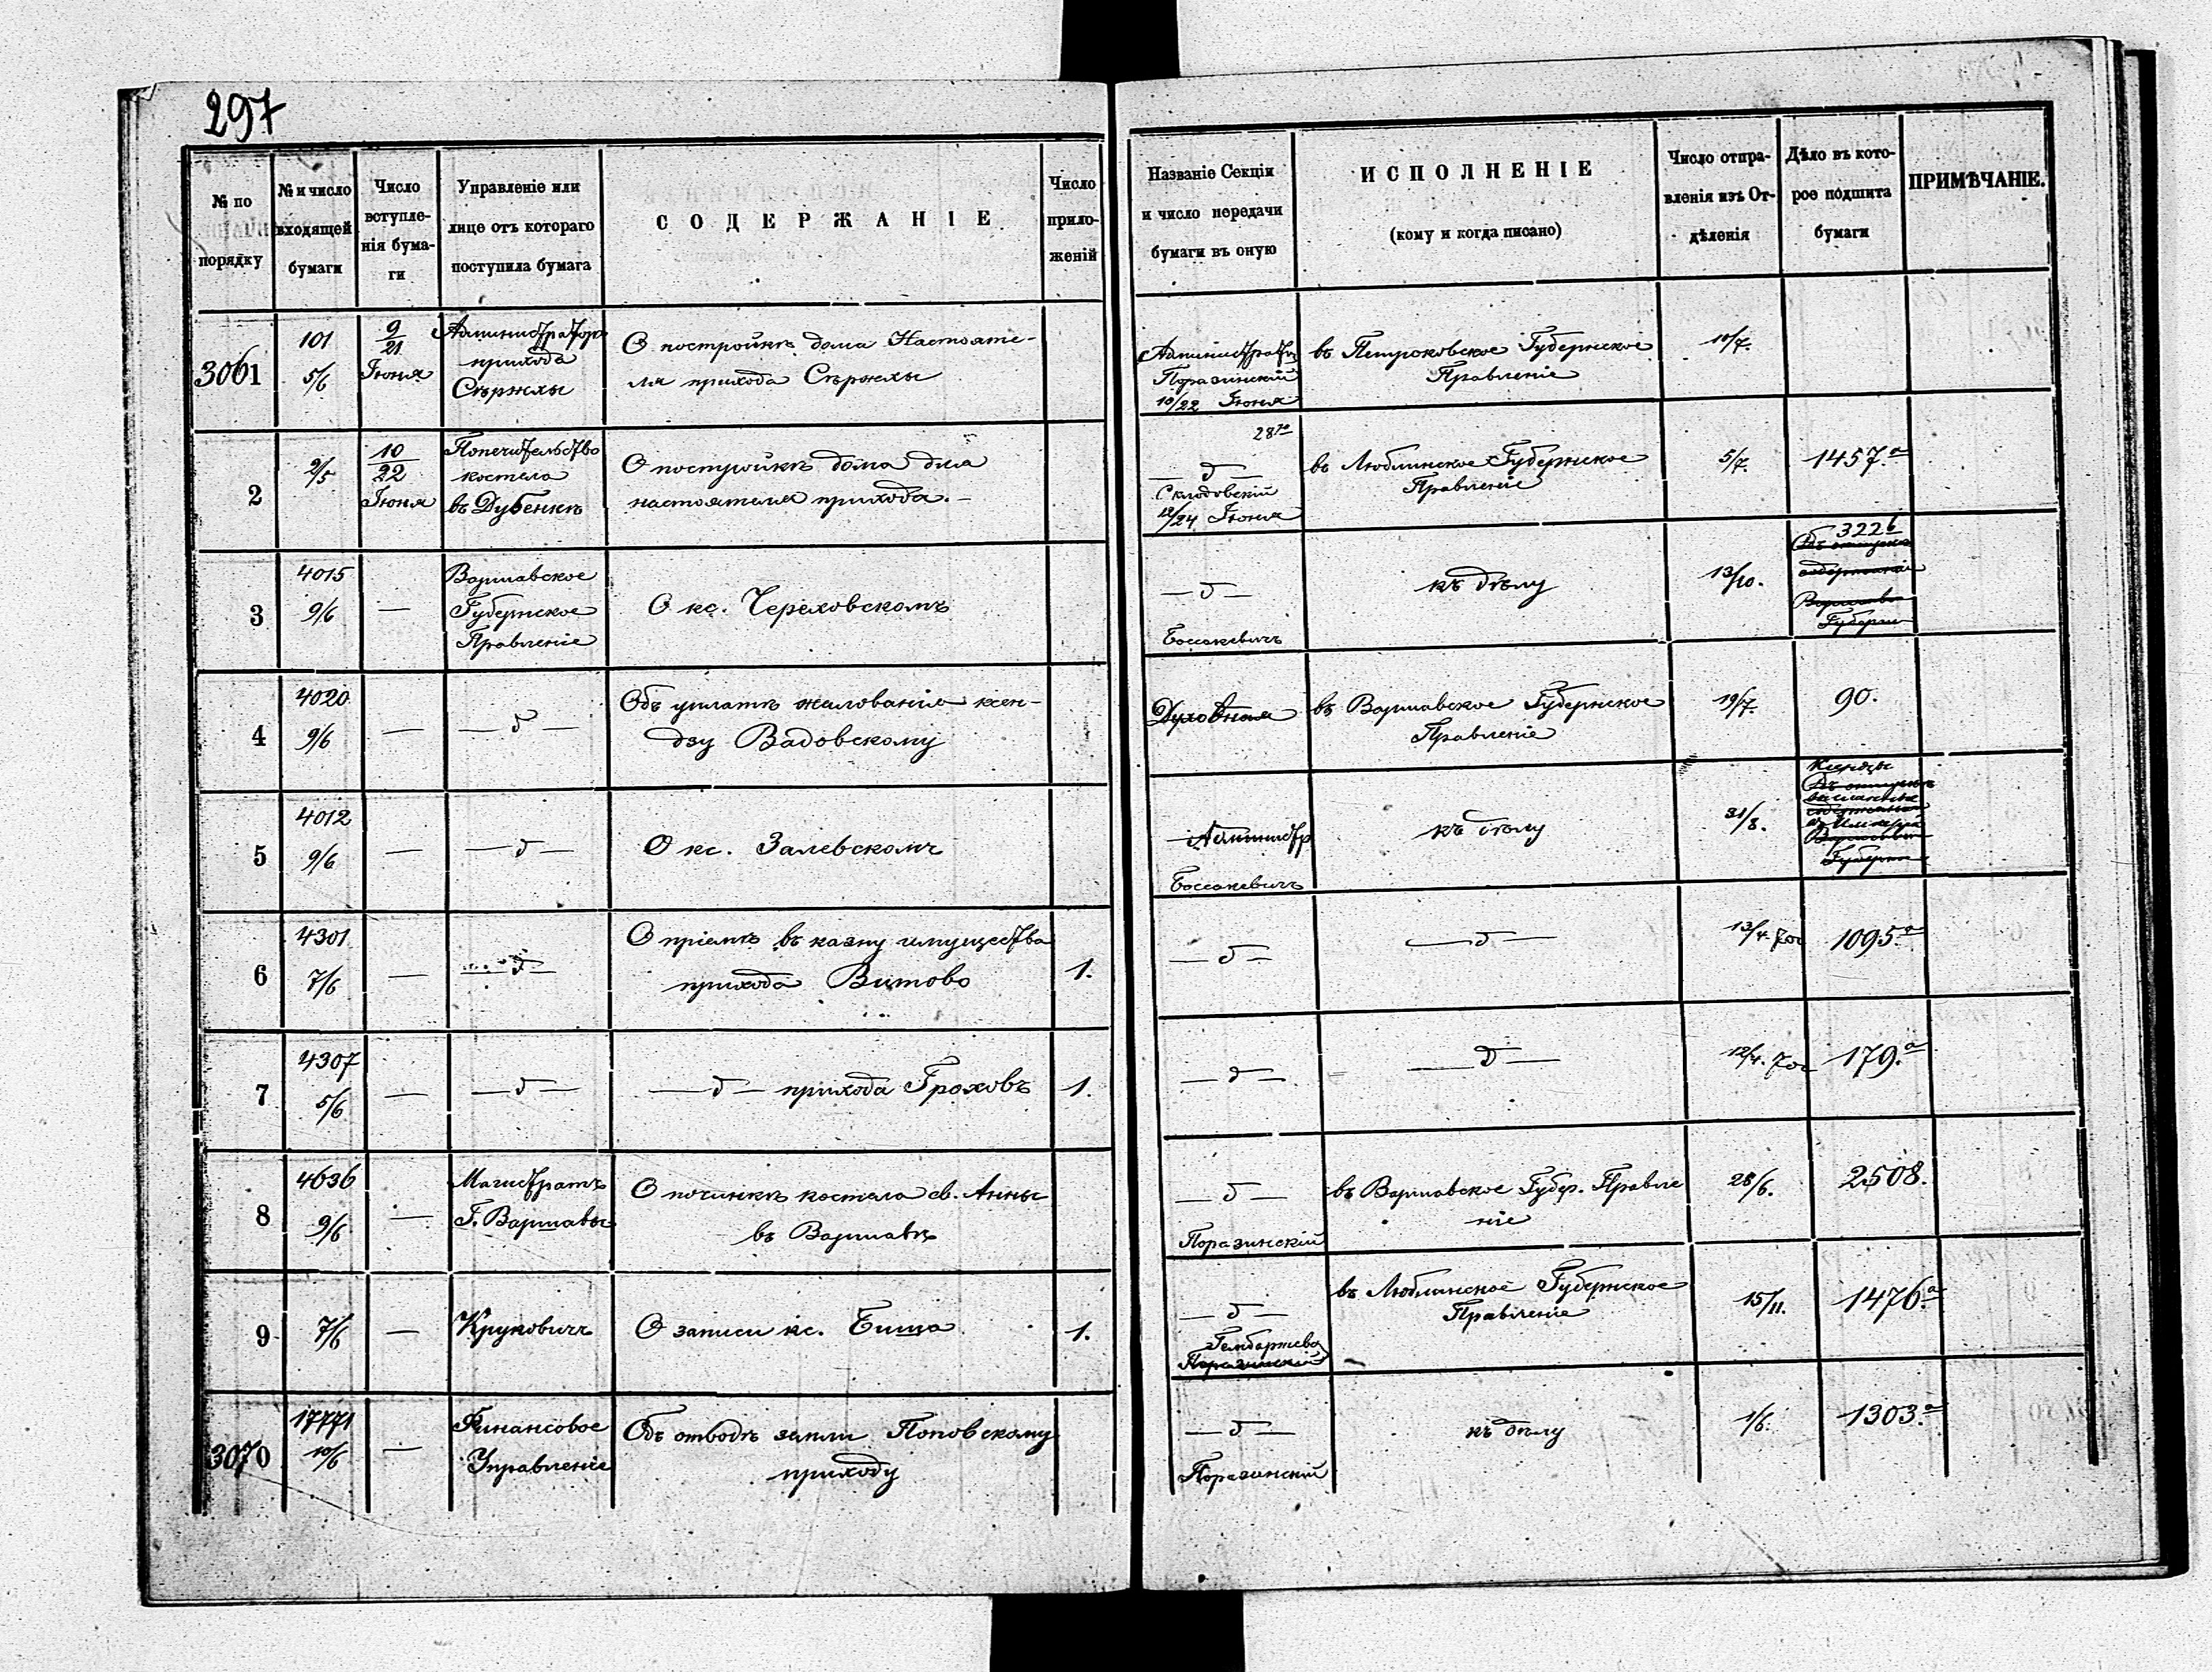 297
№ по порядку
№ и число входящей бумаги
Число вступле-нія бума-ги
Управленіе или лице отъ котораго поступила бумага
СОДЕРЖАНІЕ
Число прило-женій
Названіе Секціи и число передачи бумаги въ оную
ИСПОЛНЕНІЕ (кому и когда писано)
Число отпра-вленія изъ От-дѣленія
Дѣло въ кото-рое подшита бумаги
ПРИМѢЧАНІЕ.
3061
101
5/6
9/21 Іюня
Администраторъ
прихода
Сѣржхы
О постройкѣ дома Настояте-
ля прихода Сѣржхы
Администр
Поразинскій
10/22 Іюня
въ Петроковское Губернское
Правленіе
10/7.
2
2/5
10/22
Іюня
Попечительство
костела
въ Дубенкѣ
О постройкѣ дома для
настоятеля прихода. —
— д —
Склодовскій
12/24 Іюня
въ Люблинское Губернское
Правленіе
5/7.
1457.а
3
4015
9/6
—
Варшавское
Губернское
Правленіе
О кс. Череховскомъ
— д —
Боссакевичъ
къ дѣлу
13/10.
322б
Варшавс
Губерн
4
4020
9/6
—
— д —
Объ уплатѣ жалованія ксен-
дзу Вадовскому
Духовная
въ Варшавское Губернское
Правленіе
19/7.
90.
5
4012
9/6
—
— д —
О кс. Залевскомъ
Администр
Боссакевичъ
къ дѣлу
31/8.
Ксендзы
Губерн
6
4301
7/6
—
— д —
О пріемѣ въ казну имущества
прихода Витово
1.
— д —
— д —
13/4.
1095.а
7
4307
5/6
—
— д —
— д — прихода Гроховъ
1.
— д —
— д —
12/4.
179.а
8
4636
9/6
—
Магистратъ
Г. Варшавы
О починкѣ костела св. Анны
въ Варшавѣ
— д —
Поразинскій
въ Варшавское Губер. Правле
ніе
28/6.
2508.
9
7/6
—
Круковичъ
О записи кс. Бица
1.
— д —
Поразинскій
въ Люблинское Губернское
Правленіе
15/11.
1476.а
3070
17771
10/6
—
Финансовое
Управленіе
Объ отводѣ земли Поповскому
приходу
— д —
Поразинскій
къ дѣлу
1/6.
1303.а